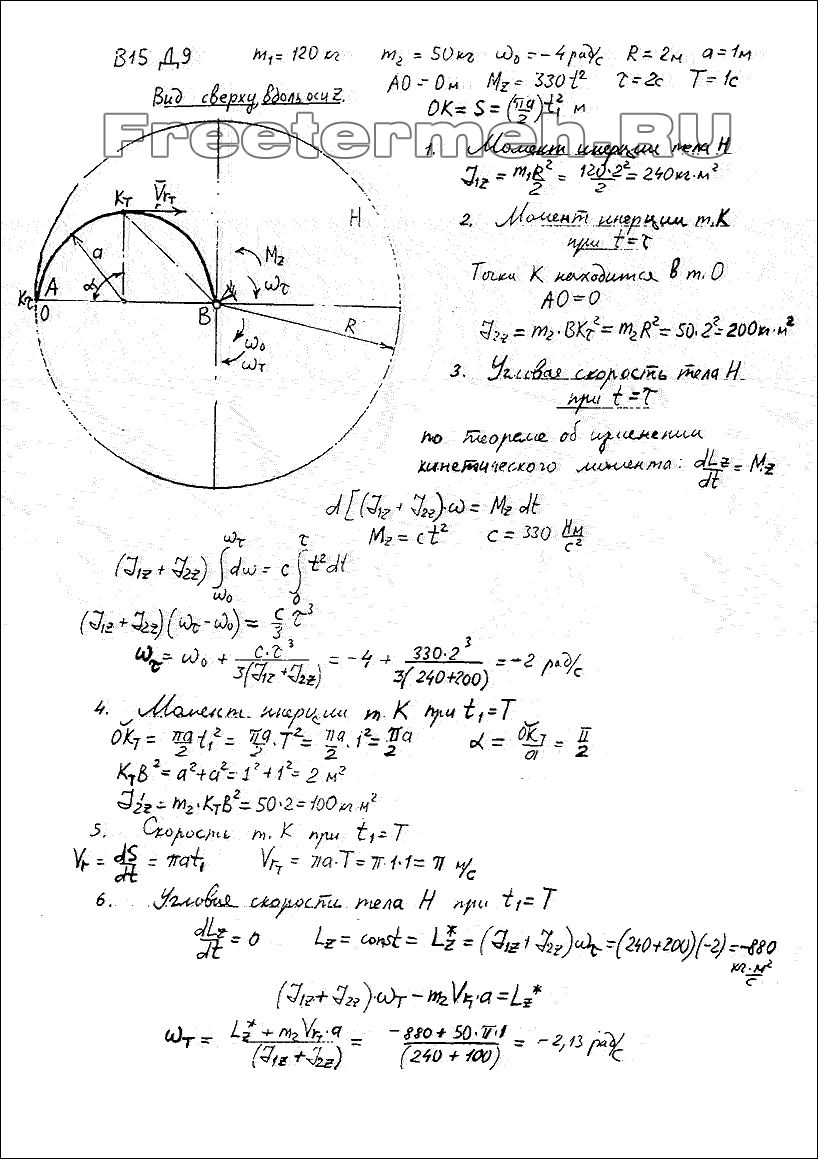 В15 Д9 m₁ = 120 кг m₂ = 50 кг ω₀ = -4 рад/с R = 2м a = 1м
AO = 0м M_z = 330t² τ = 2с T = 1с
Вид сверху, вдоль оси z.
OK = S = (πa/2)t₁² м
Freetermeh.RU
1. Момент инерции тела H
J₁z = m₁R²/2 = 120·2²/2 = 240 кг·м²
K_T V̄r_T
H
2. Момент инерции т. K
при t = τ
a M_z
α ω_τ
Точка K находится в т. O
AO = 0
K_τ A
O B R
J₂z = m₂·BK_τ² = m₂R² = 50·2² = 200 кг·м²
ω₀
ω_T
3. Угловая скорость тела H
при t = τ
по теореме об изменении
кинетического момента: dL_z/dt = M_z
d[(J₁z + J₂z)·ω = M_z dt
M_z = ct² c = 330 Нм/с²
(J₁z + J₂z) ∫_ω₀^ω_τ dω = c ∫_0^τ t²dt
(J₁z + J₂z)(ω_τ - ω₀) = c/3 τ³
ω_τ = ω₀ + c·τ³/3(J₁z + J₂z) = -4 + 330·2³/3(240+200) = -2 рад/с
4. Момент инерции т. K при t₁ = T
OK_T = πa/2 t₁² = πa/2·T² = πa/2·1² = πa/2 α = OK_T/a = π/2
K_TB² = a² + a² = 1² + 1² = 2 м²
J₂'z = m₂·K_TB² = 50·2 = 100 кг·м²
5. Скорости т. K при t₁ = T
V_r = dS/dt = πat₁ V_r_T = πa·T = π·1·1 = π м/с
6. Угловая скорости тела H при t₁ = T
dL_z/dt = 0 L_z = const = L_z* = (J₁z + J₂z)ω_τ = (240+200)(-2) = -880 кг·м²/с
(J₁z + J₂z)·ω_T - m₂V_r_T·a = L_z*
ω_T = L_z* + m₂V_r_T·a/(J₁z + J₂z) = -880 + 50·π·1/(240 + 100) = -2,13 рад/с